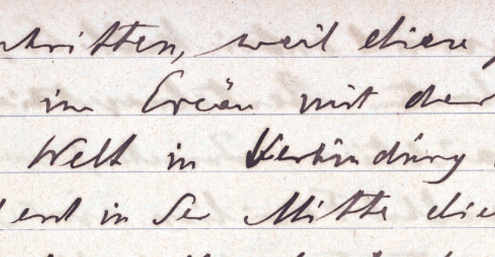 schritten, weil diese
im mit der
Welt in Verbindung
end in der Mitte die